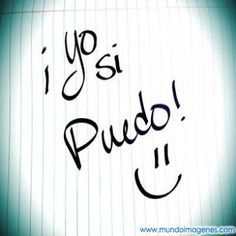 ¡ yo
si
Puedo!
www.mundoimagenes.com